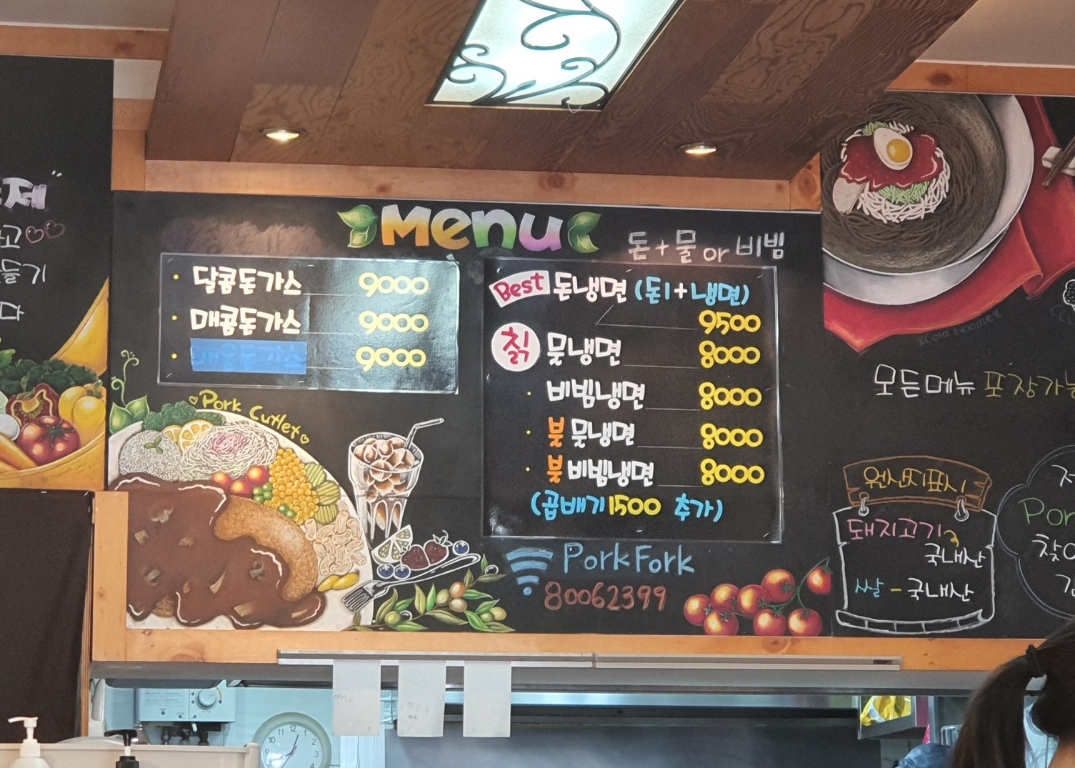 제"
고♡♡
들기
다
Menu
돈+물 or 비빔
· 달콩돈가스 9000
· 매콩돈가스 9000
· 9000
Best 돈냉면 (돈1+냉면)
9500
칡 물냉면 8000
· 비빔냉면 8000
· 불 물냉면 8000
· 불 비빔냉면 8000
(곱배기 1500 추가)
Pork Cutlet
PorkFork
80062399
Cold Noodles
모든메뉴 포장가능
원산지표시
돼지고기
국내산
쌀 - 국내산
저
Por
찾아